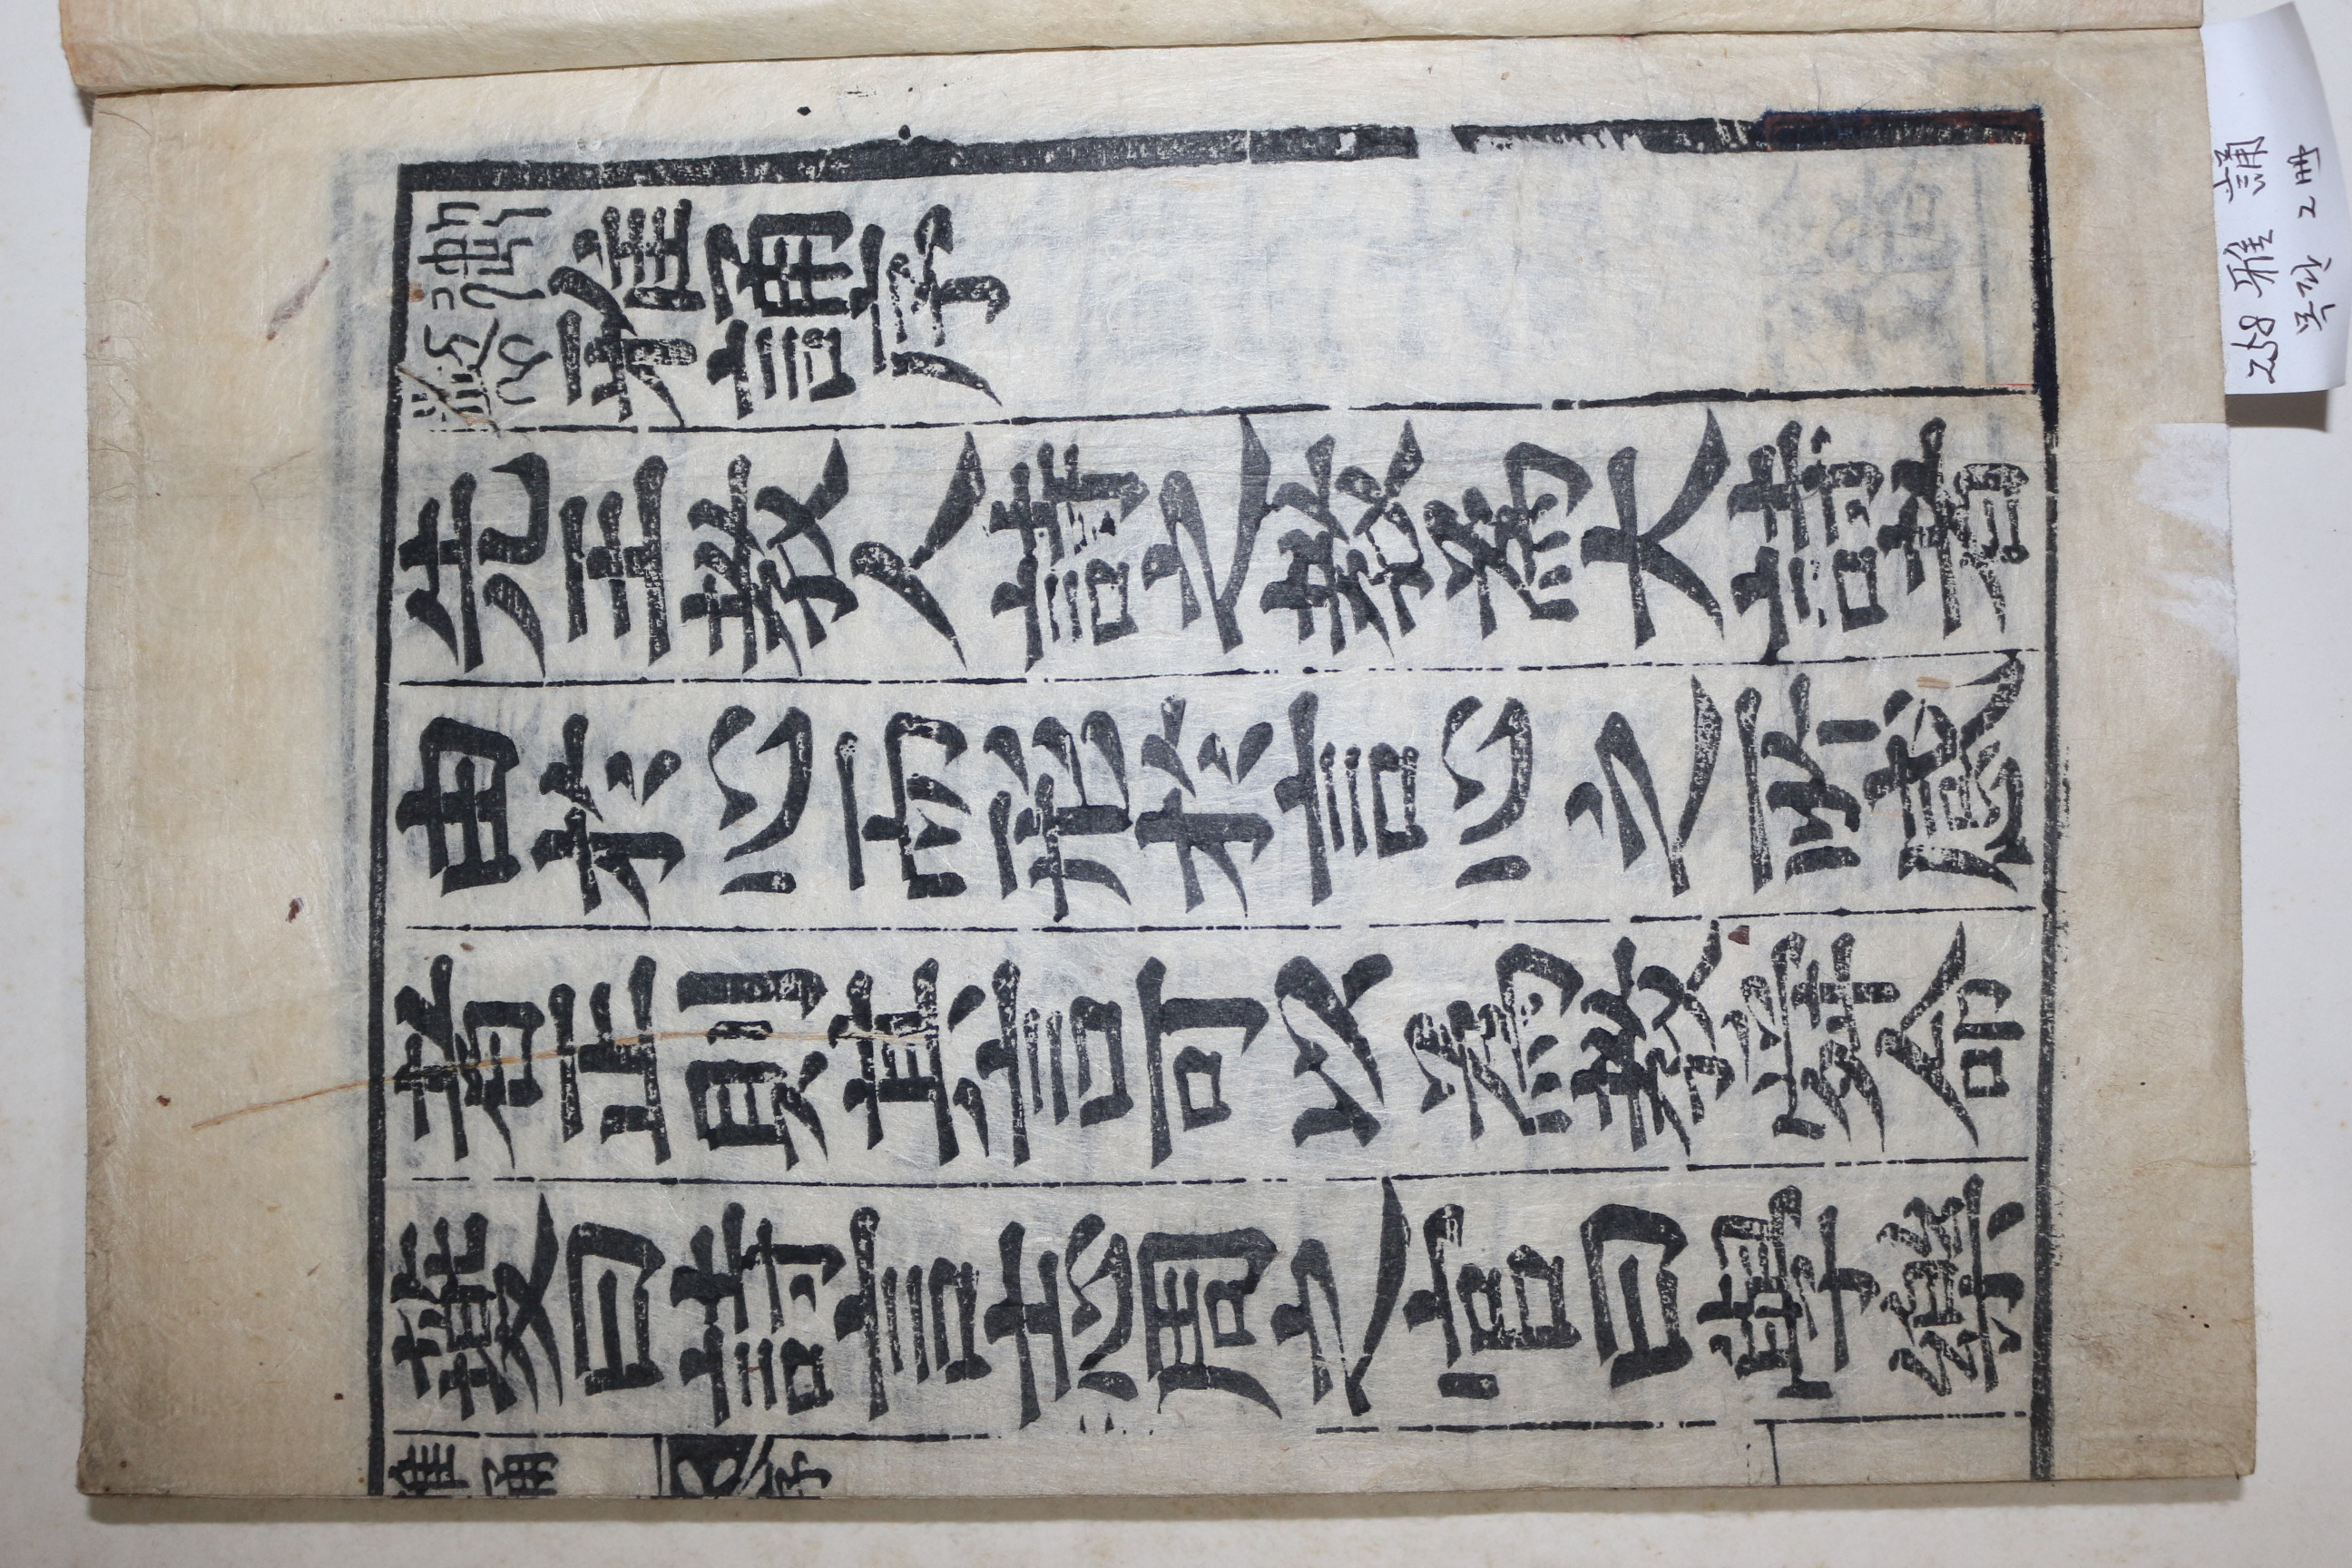 御製雅誦序
先王教人詩之教為大詩者
由於心而形於言心之所感
者正則其言可以為教舜命
夔曰詩言志周之官曰學樂
雅誦 序 一
258 雅 誦
목판 2冊